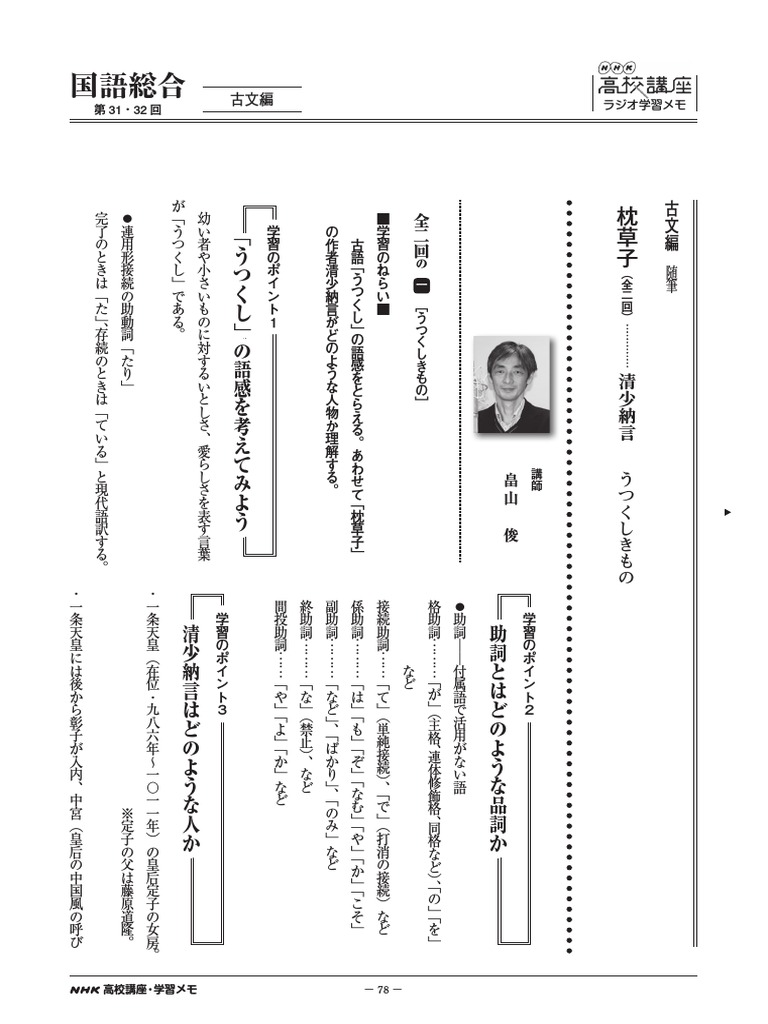 国語総合
第31・32回
古文編
NHK
高校講座
ラジオ学習メモ
古文編 随筆
枕草子(全二回)………清少納言 うつくしきもの
▶
講師
畠山 俊
全二回の 一 [うつくしきもの]
■学習のねらい■
古語「うつくし」の語感をとらえる。あわせて「枕草子」
の作者清少納言がどのような人物か理解する。
学習のポイント1
「うつくし」の語感を考えてみよう
幼い者や小さいものに対するいとしさ、愛らしさを表す言葉
が「うつくし」である。
●連用形接続の助動詞「たり」
完了のときは「た」、存続のときは「ている」と現代語訳する。
学習のポイント2
助詞とはどのような品詞か
●助詞――付属語で活用がない語
格助詞………「が」(主格、連体修飾格、同格など)、「の」「を」
など
接続助詞……「て」(単純接続)、「で」(打消の接続)など
係助詞………「は」「も」「ぞ」「なむ」「や」「か」「こそ」
副助詞………「など」、「ばかり」、「のみ」など
終助詞………「な」(禁止)、など
間投助詞……「や」「よ」「か」など
学習のポイント3
清少納言はどのような人か
・一条天皇(在位・九八六年〜一〇一一年)の皇后定子の女房。
※定子の父は藤原道隆。
・一条天皇には後から彰子が入内、中宮(皇后の中国風の呼び
NHK 高校講座・学習メモ
― 78 ―